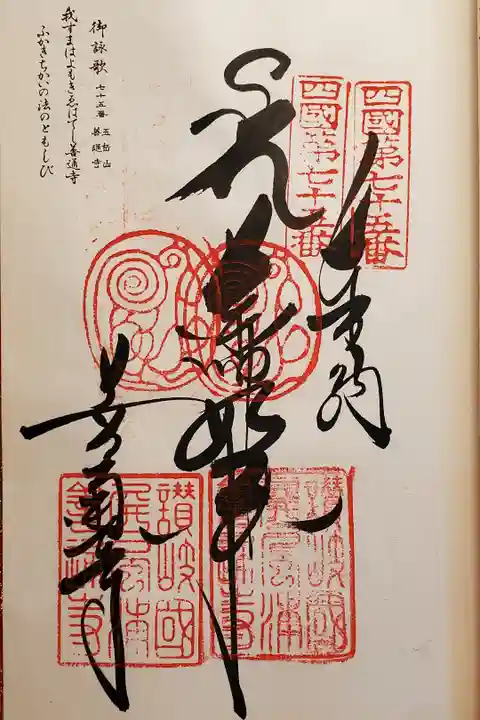 四國第七十五番
四國第七十五番
善通寺
讃岐國
屏風浦
善通寺
讃岐國
屏風浦
善通寺
御詠歌 七十五番 五岳山
善通寺
我すまはよもきゑはてし善通寺
ふかきちかいの法のともしび